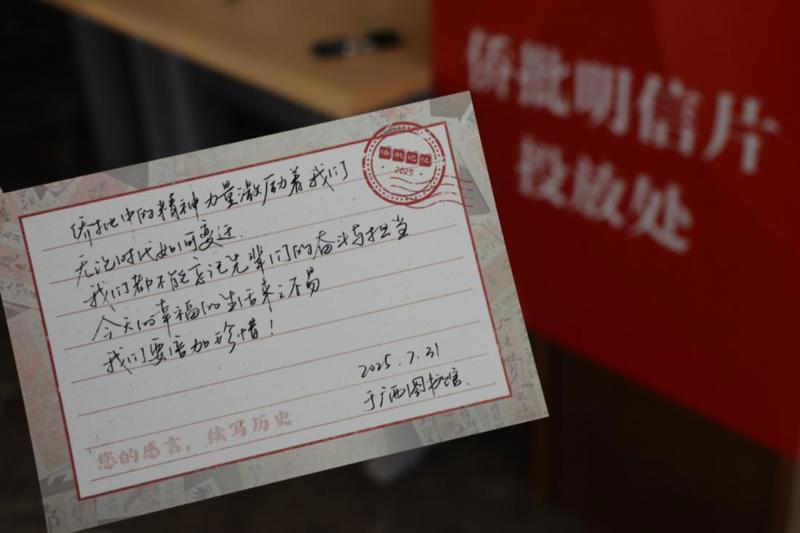 侨批明信片
投放处
侨批记忆
2025
侨批中的精神力量激励着我们
无论时代如何变迁
我们都不能忘记先辈们的奋斗与担当
今天的幸福的生活来之不易
我们要倍加珍惜！
2025.7.31
于广西图书馆.
您的感言，续写历史